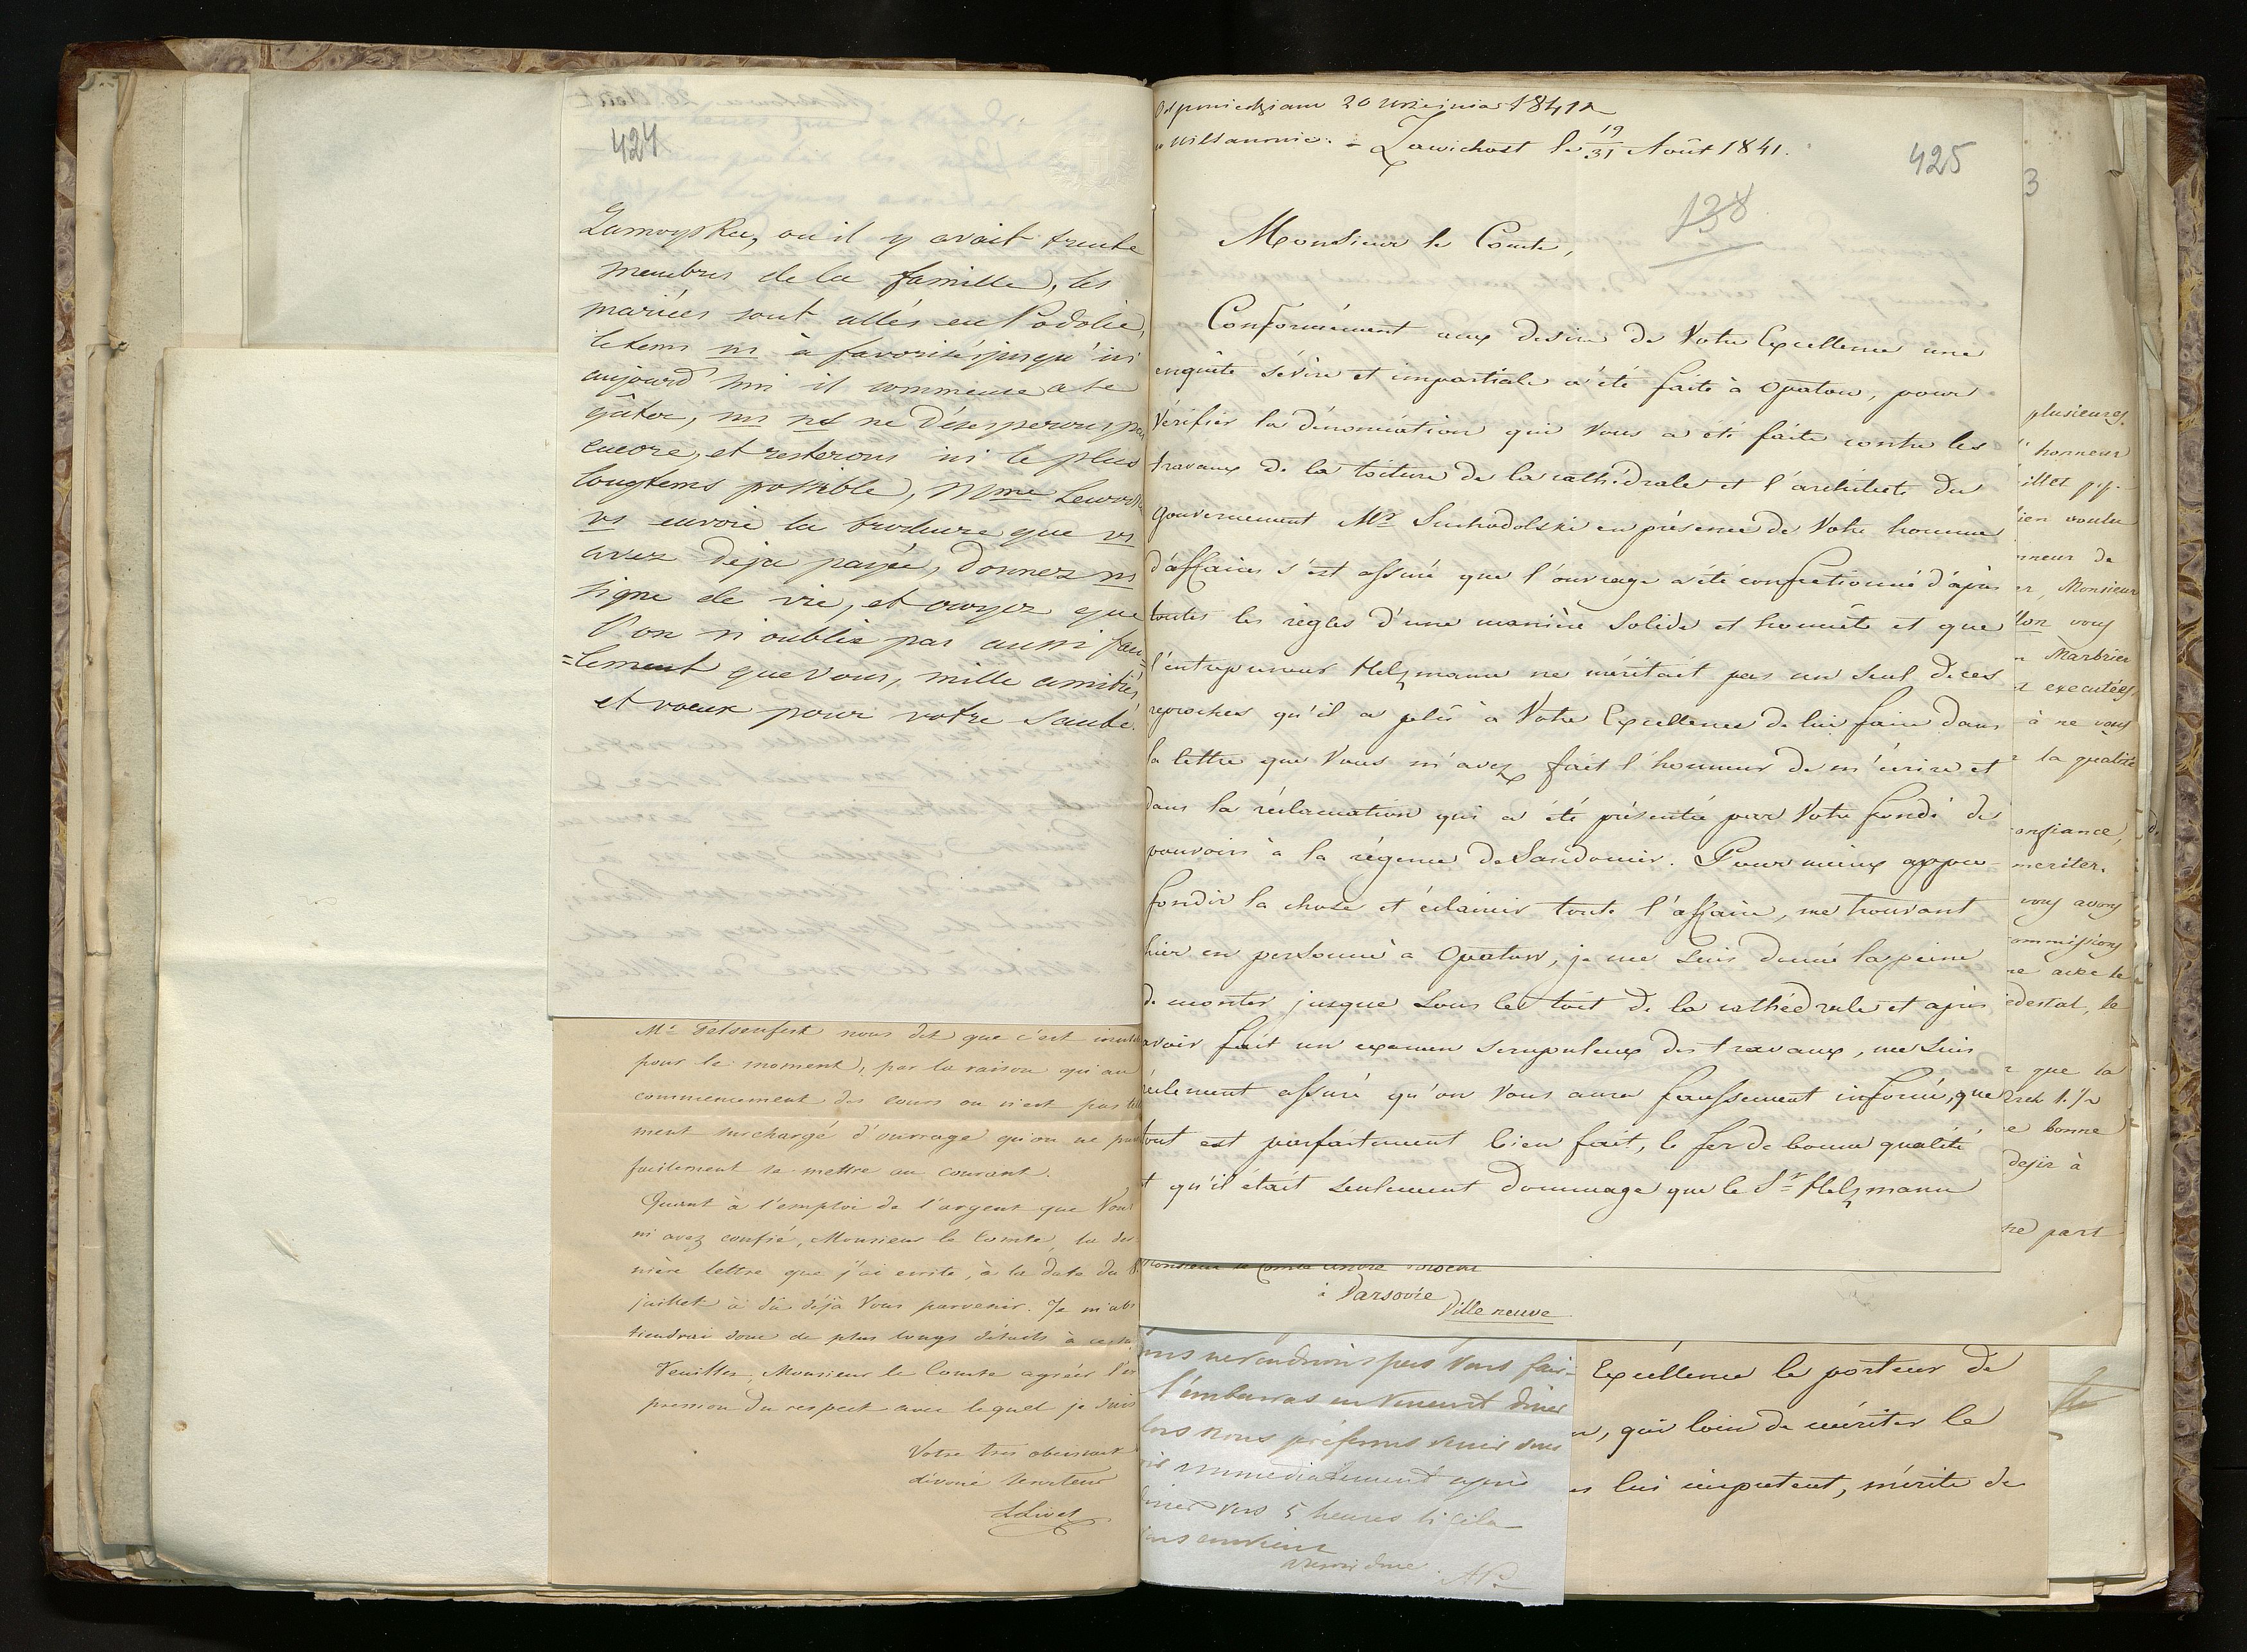 424
Zamoyska, où il y avait trente
membres de la famille, les
mariées sont allés en Podolie,
le tems ns à favorisé jusqu'ici
aujourd'hui il commense a se
gâter, mr ns ne désesperons pas
encore, et resterons ici le plus
longtems possible, Mme
vs envoie la brodure que vs
avez deja payée, donnez ns
signe de vie, et croyez que
l'on n'oublie pas aussi faci=
=lement que vous, mille amitiés
et voeux pour votre santé.
Mr Felsenfest nous dit que c'est inutile
pour le moment, par la raison qu'au
commencement des cours on n'est pas telle
ment surchargé d'ouvrage qu'on ne puisse
facilement se mettre au courant.
Quant à l'emploi de l'argent que Vous
m'avez confié, Monsieur le Comte, la der
nière lettre que j'ai ecrite, à la date du 8
juillet à dû déjà Vous parvenir. Je m'abs
tiendrai donc de plus longs détails à
Veuillez, Monsieur le Comte agréer l'ex
pression du respect avec lequel je suis
Votre très obeissant
dévoué serviteur
LLivet
Odpowiedziano 20 Września 1841 r
w Wilanowie. - Zawichost le 19/31 Août 1841.
425
138
Monsieur le Comte,
Conformément aux desirs de Votre Excellence une
enquête sévère et impartiale a été faite à Opatow, pour
vérifier la dénonciation qui Vous a été faite contre les
travaux de la toiture de la cathédrale et l'architecte du
Gouvernement Mr Suchodolski en présence de Votre homme
d'affaires s'est assuré que l'ouvrage a été confectionné d'après
toutes les règles d'une manière solide et honnête et que
l'entrepreneur Helzmann ne méritait pas un seul de ces
reproches qu'il a plû à Votre Excellence de lui faire dans
la lettre que Vous m'avez fait l'honneur de m'écrire et
dans la réclamation qui a été présentée par Votre fondé de
pouvoirs à la régence de Sandomir. Pour mieux appro-
fondir la chose et éclaircir toute l'affaire, me trouvant
hier en personne à Opatow, je me suis donné la peine
de monter jusque sous les toit de la cathédrale et après
avoir fait un examen scrupuleux des travaux, me suis
réelement assuré qu'on Vous aura faussement informé, que
tout est parfaitement bien fait, le fer de bonne qualité
et qu'il était seulement dommage que le Sr Helzmann
à Varsovie
Ville neuve
nous ne voudrions pas vous fair-
l'embarras en venant diner
lors nous préferons venir vous
immediatement après
diner vers 5 heures si cela
vous convient
Excellence le porteur de
, qui loin de mériter le
lui imputent, mérite de
3
plusieurs
honneur
illet p.p.
ien voulu
nneur de
er, Monsieur
lon vous
n Marbrier
t executées
à ne vous
la qualité
onfiance,
meriter.
vous avons
ommissions
ne avec le
edestal, le
que la
e bonne
desir à
ne part